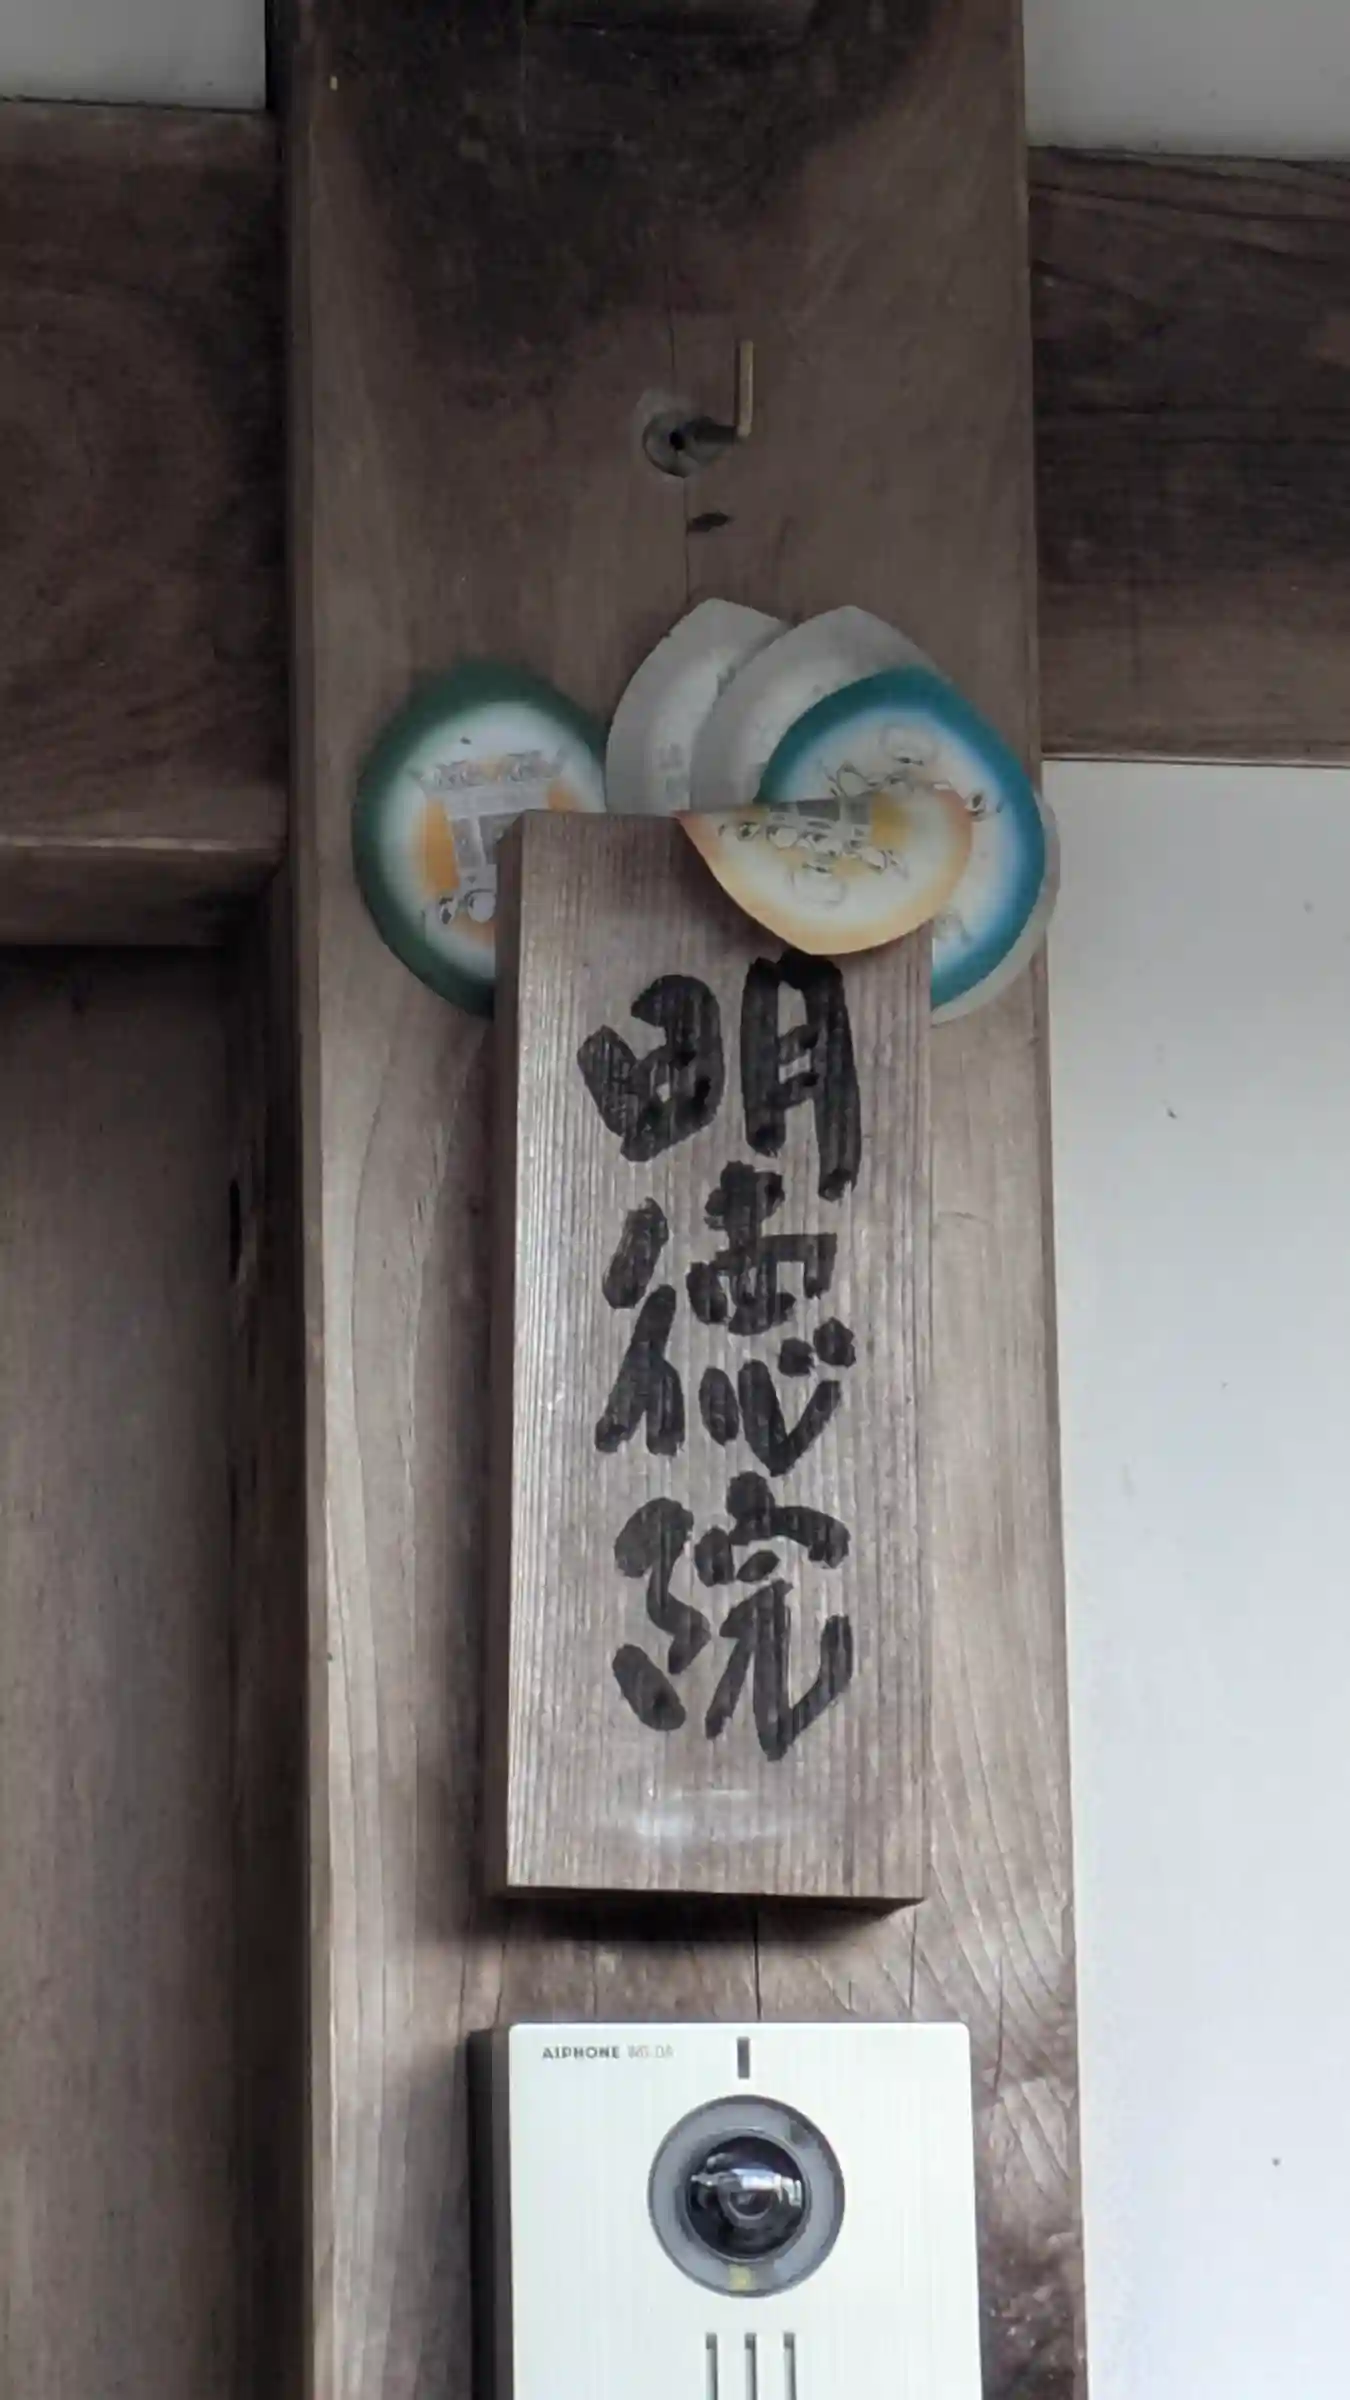 明徳院
AIPHONE